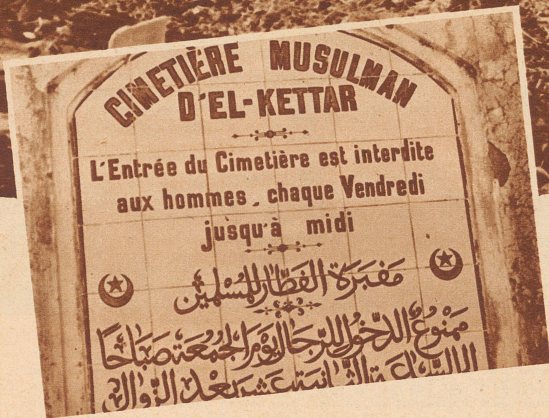 CIMETIÈRE MUSULMAN
D'EL-KETTAR
L'Entrée du Cimetière est interdite
aux hommes, chaque Vendredi
jusqu'à midi
مقبرة القطار للمسلمين
ممنوع الدخول للرجال يوم الجمعة صباحا
بعد الزوال